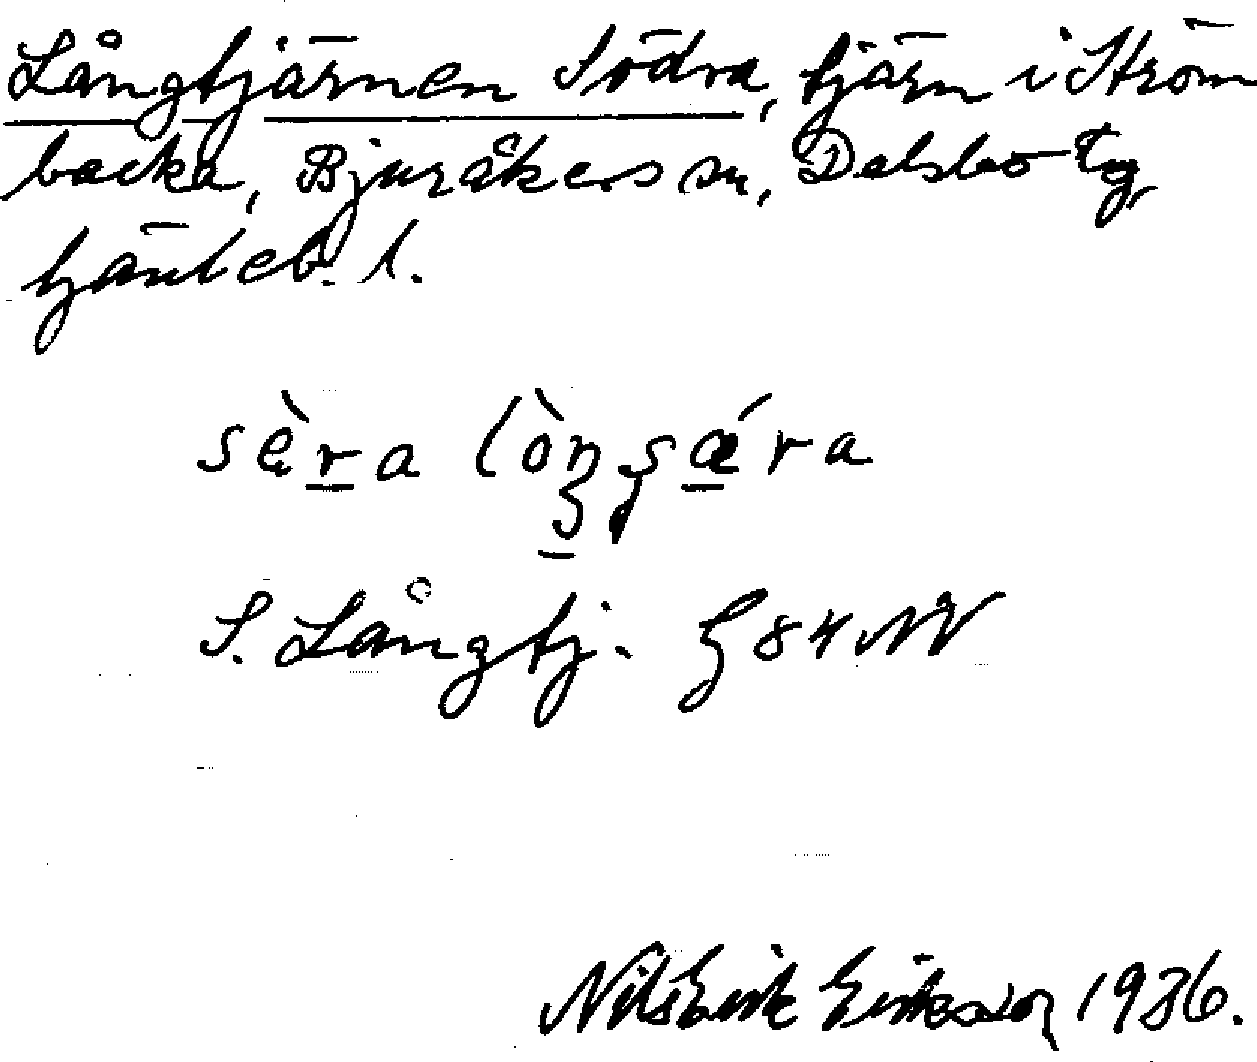 Långtjärnen Södra, tjärn i Ström
backa, Bjuråkers sn, Delsbo tg,
Gävleb. l.
sèra lòŋʂǽra
S. Långtj. G 84 NV
Nils Erik Eriksson 1936.